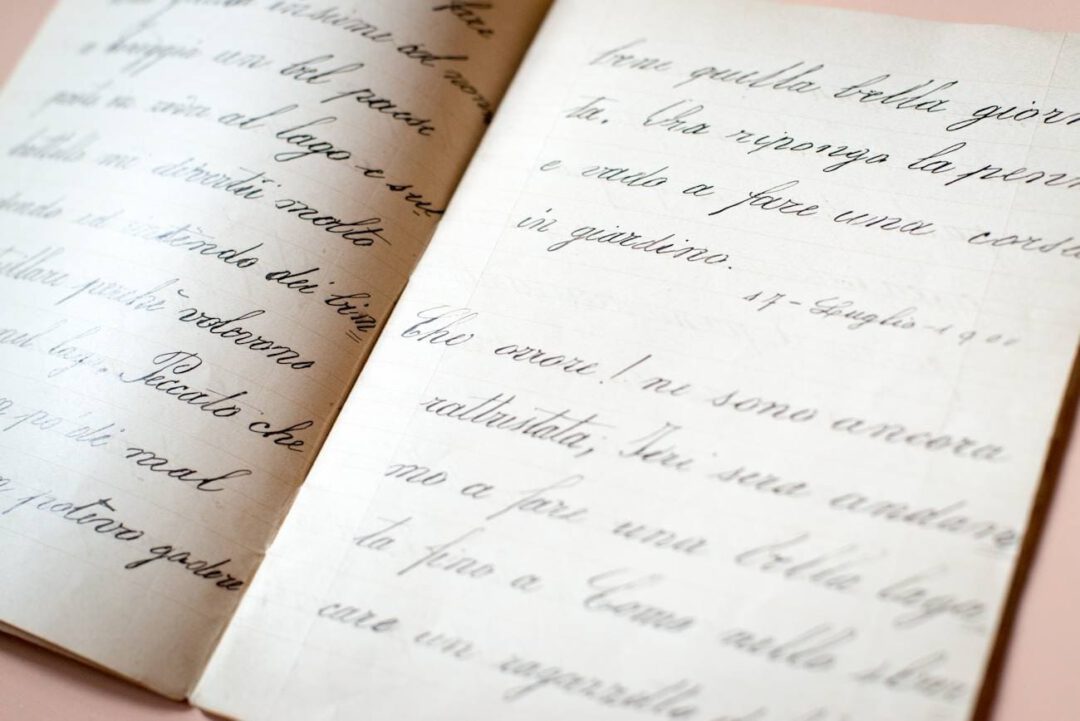 fare
insieme col nonn
a Laveggio un bel paese
poi in riva al lago e sul
mi divertii molto
ed dei bim
perchè volevano
nel lago. Peccato che
po' di mal
potevo godere
bene quella bella giorn
ta. Ora ripongo la penn
e vado a fare una corsa
in giardino.
17 - Luglio - 19
Che orrore! ne sono ancora
rattristata; Ieri sera andam
mo a fare una bella
ta fino a Como nello
care un ragazzetto